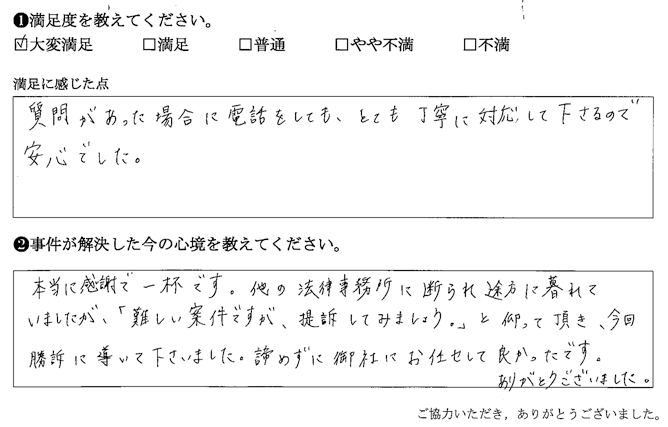 ❶満足度を教えてください。
☑大変満足 □満足 □普通 □やや不満 □不満
満足に感じた点
質問があった場合に電話をしても、とても丁寧に対応して下さるので
安心でした。
❷事件が解決した今の心境を教えてください。
本当に感謝で一杯です。他の法律事務所に断られ途方に暮れて
いましたが、「難しい案件ですが、提訴してみましょう。」と仰って頂き、今回
勝訴に導いて下さいました。諦めずに御社にお任せして良かったです。
ありがとうございました。
ご協力いただき，ありがとうございました。